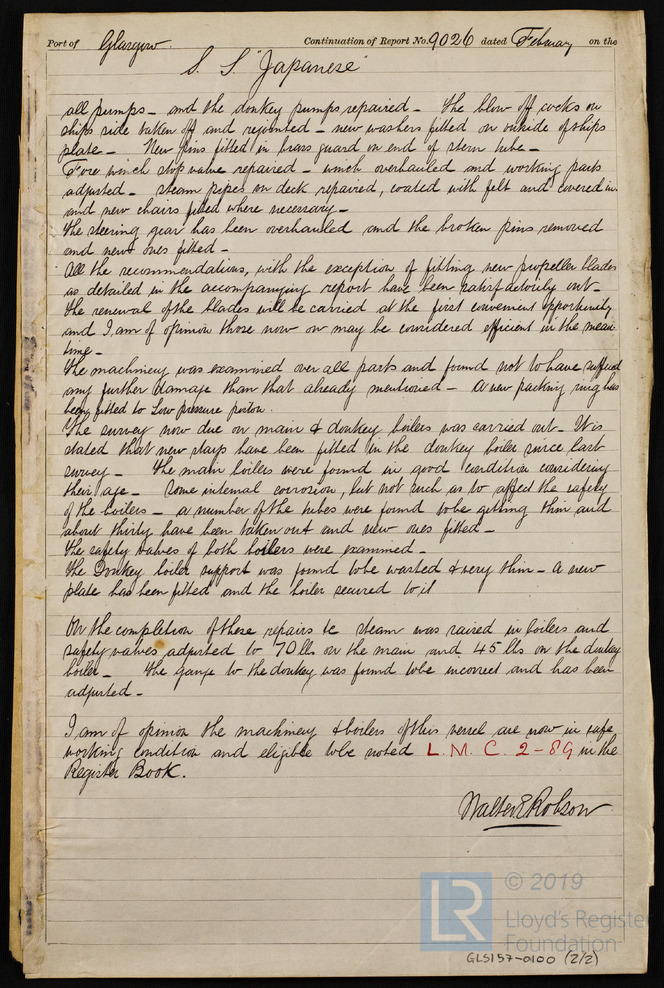 Port of Glasgow. Continuation of Report No. 9026 dated February on the
S. S. "Japanese"
all pumps - and the donkey pumps repaired - The blow off cocks on
ships side taken off and rejointed - new washers fitted on outside of ships
plate - New pins fitted in brass guard on end of stern tube -
Fore winch stop valve repaired - winch overhauled and working parts
adjusted - steam pipes on deck repaired, coated with felt and covered in
and new chairs fitted where necessary -
The steering gear has been overhauled and the broken pins removed
and new ones fitted -
All the recommendations, with the exception of fitting new propeller blades
as detailed in the accompanying report have been satisfactorily out -
The renewal of the blades will be carried at the first convenient opportunity
and I am of opinion those now on may be considered efficient in the mean
time -
The machinery was examined over all parts and found not to have suffered
any further damage than that already mentioned - A new packing ring has
been fitted to Low pressure piston.
The survey now due on main & donkey boilers was carried out - It is
stated that new stays have been fitted in the donkey boiler since last
survey - The main boilers were found in good condition considering
their age - some internal corrosion, but not such as to affect the safety
of the boilers - a number of the tubes were found to be getting thin and
about thirty have been taken out and new ones fitted -
The safety valves of both boilers were examined -
The Donkey boiler support was found to be wasted & very thin - a new
plate has been fitted and the boiler secured to it
On the completion of these repairs &c steam was raised in boilers and
safety valves adjusted to 70 lbs on the main and 45 lbs on the donkey
boiler - The gauge to the donkey was found to be incorrect and has been
adjusted -
I am of opinion the machinery & boilers of this vessel are now in safe
working condition and eligible to be noted L. M. C. 2-89 in the
Register Book.
Walter E Robson
LR
© 2019
Lloyd's Register
Foundation
GLS157-0100 (2/2)